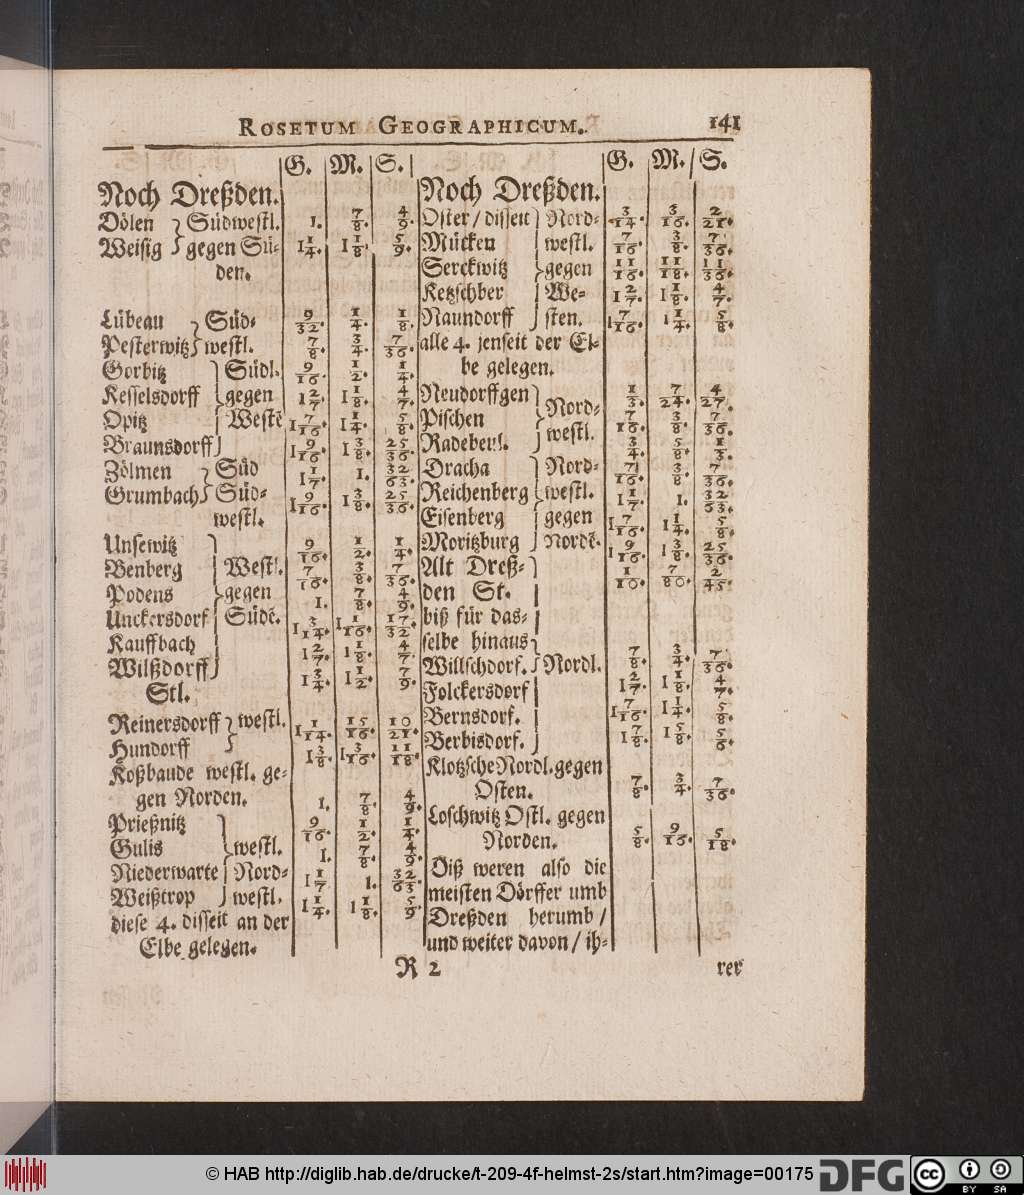 ROSETUM GEOGRAPHICUM. 141
G. M. S.
Noch Dreßden.
Dölen } Südwestl. 1. 7/8. 4/9.
Weisig } gegen Sü- 1 1/4. 1 1/8. 5/9.
den.
Lübeau } Süd- 9/32. 1/4. 1/8.
Pesterwitz } westl. 7/8. 3/4. 7/36.
Gorbitz } Südl. 9/16. 1/2. 1/4.
Kesselsdorff } gegen 1 2/7. 1 1/8. 4/7.
Opitz } Westẽ 1 7/16. 1 1/4. 5/8.
Braunsdorff } 1 9/16. 1 3/8. 25/36.
Zölmen } Süd 1 1/7. 1. 32/63.
Grumbach } Süd- 1 9/16. 1 3/8. 25/36.
westl.
Unsewitz } 9/16. 1/2. 1/4.
Benberg } Westl. 7/16. 3/8. 7/36.
Podens } gegen 1. 7/8. 4/9.
Unckersdorf } Südẽ. 1 3/14. 1 1/16. 17/32.
Kauffbach } 1 2/7. 1 1/8. 4/7.
Wilßdorff } 1 3/4. 1 1/2. 7/9.
Stl.
Reinersdorff } westl. 1 1/14. 15/16. 10/21.
Hundorff } 1 3/8. 1 3/16. 11/18.
Koßbaude westl. ge-
gen Norden. 1. 7/8. 4/9.
Prießnitz } 9/16. 1/2. 1/4.
Gulis } westl. 1. 7/8. 4/9.
Niederwarte } Nord- 1 1/7 1. 32/63.
Weißtrop } westl. 1 1/4. 1 1/8. 5/9.
diese 4. disseit an der
Elbe gelegen.
G. M. S.
Noch Dreßden.
Oster / disseit } Nord- 3/14. 3/16. 2/21.
Mücken } westl. 7/16. 3/8. 7/36.
Serckwitz } gegen 11/16. 11/18. 11/36.
Ketzschber } We- 1 2/7. 1 1/8. 4/7.
Naundorff } sten. 1 7/16. 1 1/4. 5/8.
alle 4. jenseit der El-
be gelegen.
Neudorffgen } 1/3. 7/24. 4/27.
Pischen } Nord- 7/16. 3/8. 7/36.
Radebeul. } westl. 3/4. 5/8. 1/3.
Dracha } Nord- 7/16. 3/8. 7/36.
Reichenberg } westl. 1 1/7. 1. 32/63.
Eisenberg } gegen 1 7/16. 1 1/4. 5/8.
Moritzburg } Nordẽ. 1 9/16. 1 3/8. 25/36.
Alt Dreß- } 1/10. 7/80. 2/45.
den St.
biß für das-
selbe hinaus
Willschdorf. } Nordl. 7/8. 3/4. 7/36.
Folckersdorf 1 2/7. 1 1/8. 4/7.
Bernsdorf. 1 7/16. 1 1/4. 5/8.
Berbisdorf. 1 7/8. 1 5/8. 5/6.
Klotzsche Nordl. gegen
Osten. 7/8. 3/4. 7/36.
Loschwitz Ostl. gegen
Norden. 5/8. 9/16. 5/18.
Diß weren also die
meisten Dörffer umb
Dreßden herumb /
und weiter davon / ih-
R 2 rer
© HAB http://diglib.hab.de/drucke/t-209-4f-helmst-2s/start.htm?image=00175
DFG
cc BY SA